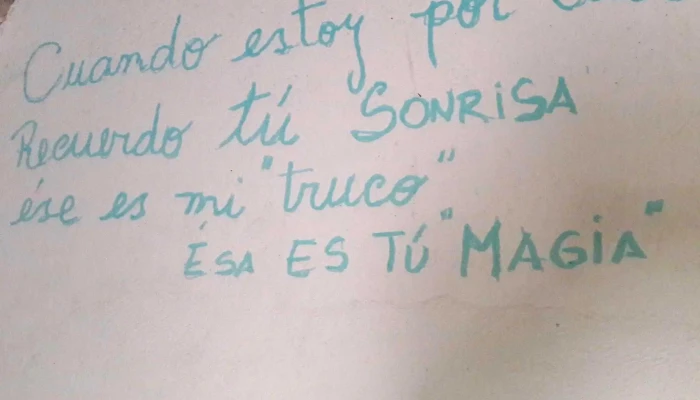 Cuando estoy por
Recuerdo tú SONRiSA
ése es mi "truco"
ÉSA ES TÚ "MAGiA"